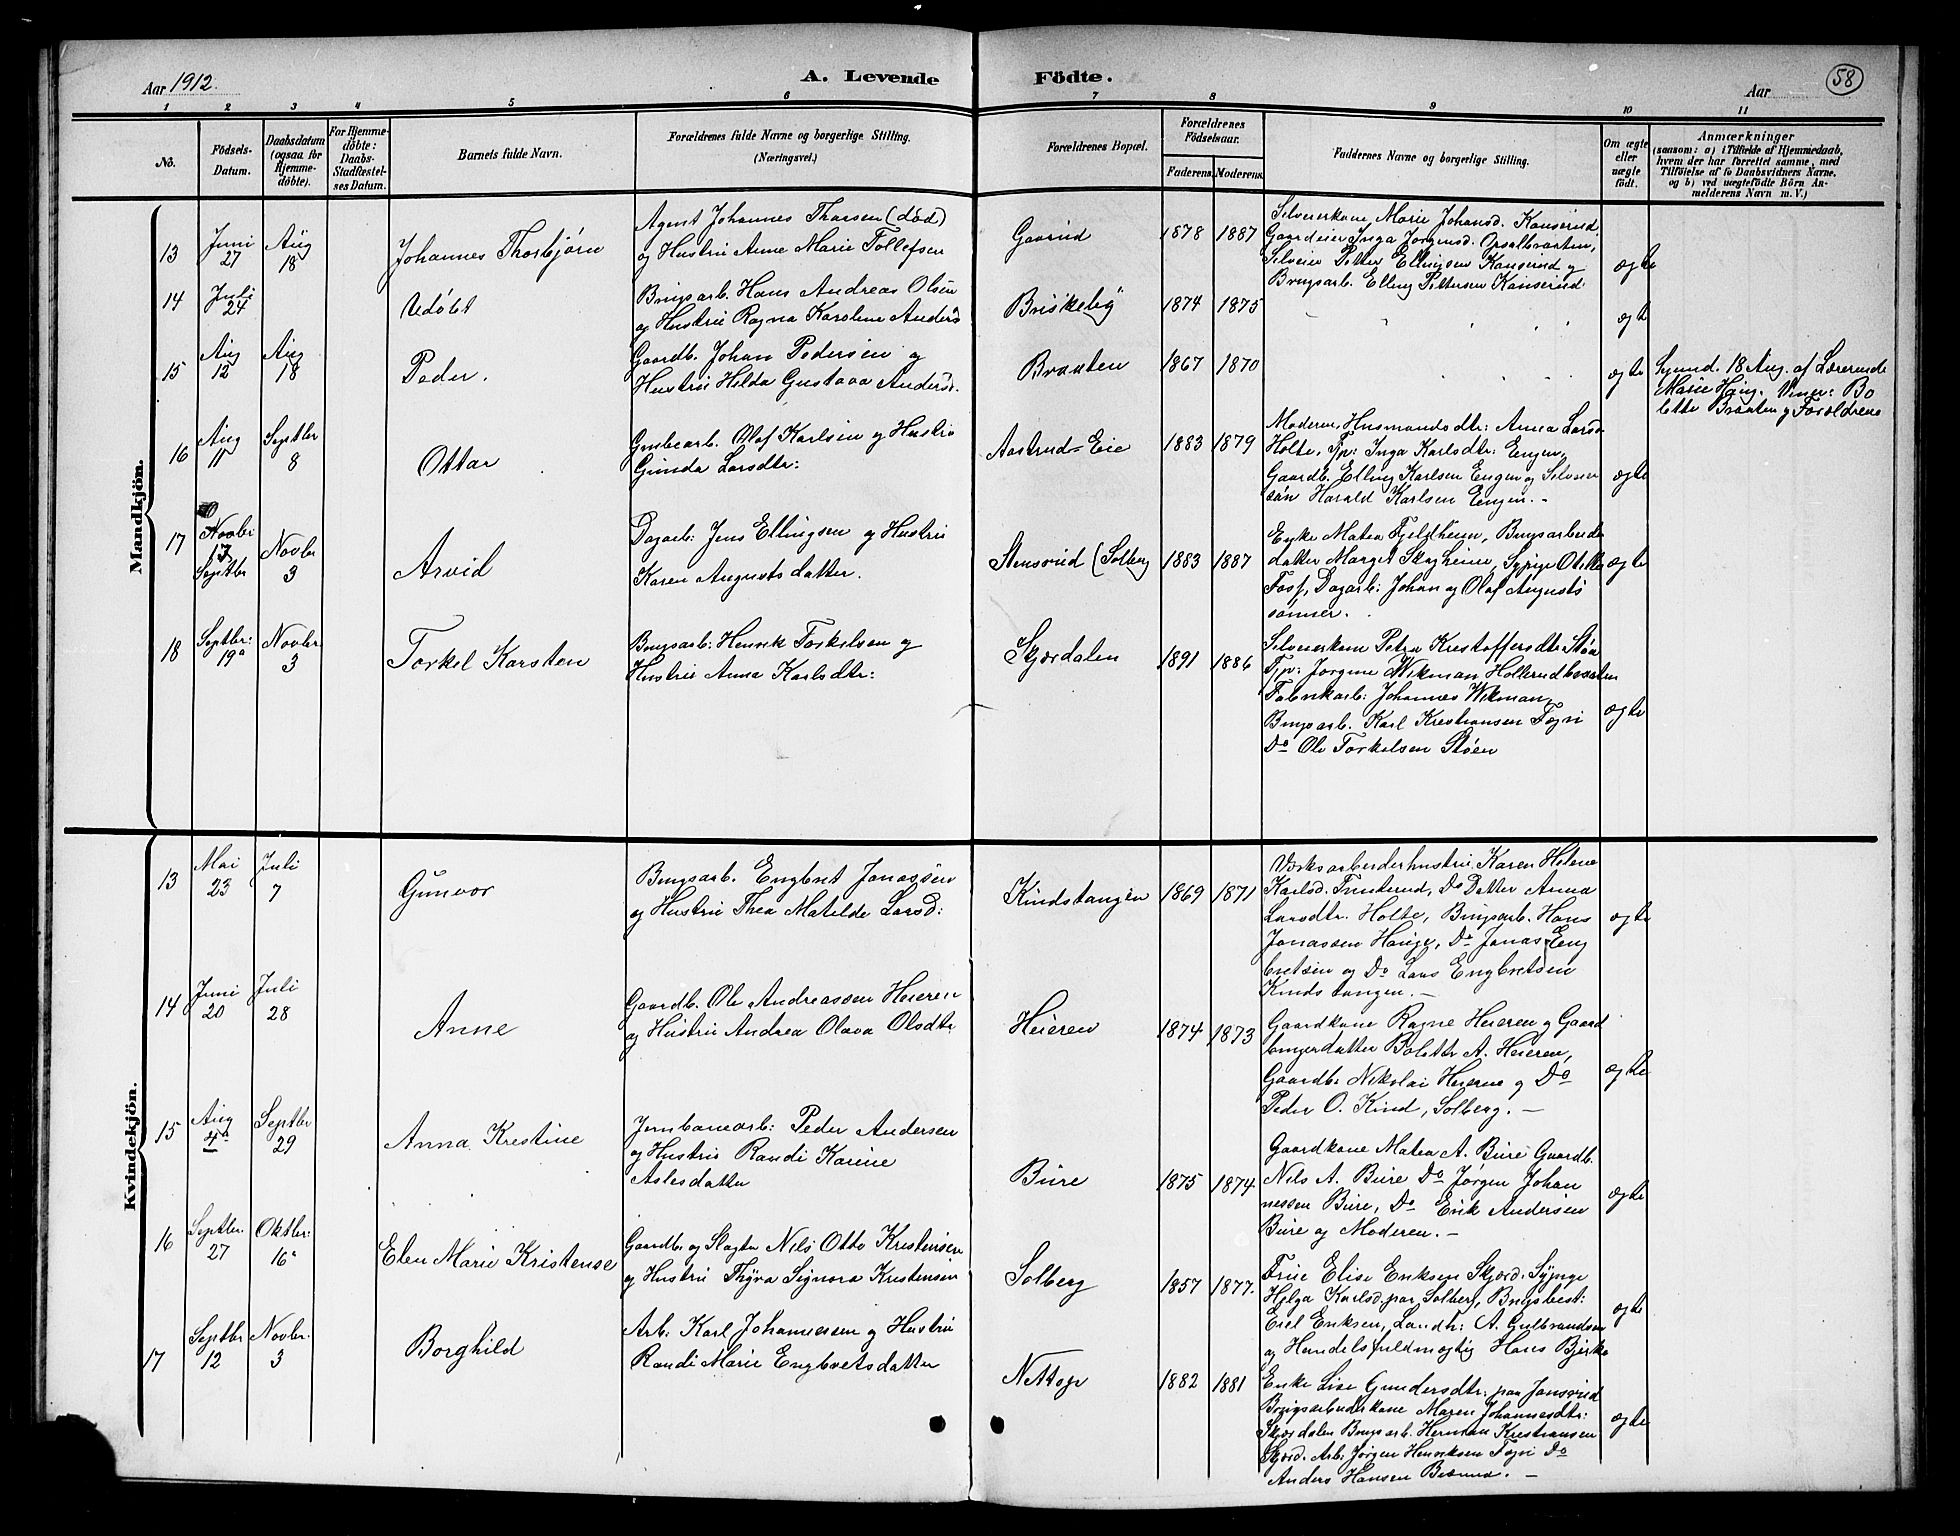 Aar 1912. A. Levende Födte. Aar 58
1 2 3 4 5 6 7 8 9 10 11
Nö. Födsels-Datum. Daabsdatum (ogsaa for Hjemme-döbte). For Hjemme-döbte: Daabs-Stadfæstel-ses Datum. Barnets fulde Navn. Forældrenes fulde Navne og borgerlige Stilling. (Næringsvei.) Forældrenes Bopæl. Forældrenes Födselsaar. Faderens. Moderens. Faddernes Navne og borgerlige Stilling. Om ægte eller uægte födt. Anmærkninger (saasom: a) i Tilfælde af Hjemmedaab, hvem der har forrettet samme, med Tilföielse af to Daabsvidners Navne, og b) ved uægtefödte Börn An-melderens Navn m. V.)
Mandkjön.
13 Juni 27 Aug 18 Johannes Thorbjørn
Agent Johannes Thorsen (død)
og Hustru Anne Marie Tollefsen
Gaarud 1878 1887
Selveierkone Marie Johansd. Kanserud,
Gaardeier Inga Jørgensd. Opsalbraaten,
Selveier Petter Ellingsen Kanserud og
Brugsarb. Elling Pettersen Kanserud.
ægte
14 Juli 24 Udøbt
Brugsarb. Hans Andreas Olsen
og Hustru Ragna Karoline Andersd
Briskelig 1874 1875
ægte
15 Aug 12 Aug 18 Peder.
Gaardb. Johan Pedersen og
Hustru Helda Gustava Andersd.
Braaten 1867 1870
ægte
18 Aug. af Lærerinde
Marie Haug. Vidner: Bo
lette Braaten og Forældrene
16 Aug 11 Septbr 8 Ottar
Grubearb. Olaf Karlsen og Hustru
Gunda Larsdtr:
Aastrud-Eie 1883 1879
Moderen, Husmandsdtr: Anna Larsd
Holte, Tp: Inga Karlsdtr: Engen,
Gaardb. Elling Karlsen Engen og Selveier
søn Harald Karlsen Engen. -
ægte
17 Novbr 13 Septbr Novbr 3 Arvid
Dagarb: Jens Ellingsen og Hustru
Karen Augustsdatter.
Stensrud (Solberg 1883 1887
Enke Matea Fjeldheim, Brugsarbeider
datter Marget Skogheim, Sypige Otilie
Foss, Dagarb: Johan og Olaf Augusts
sønner.
ægte
18 Septbr: 19 Novbr 3 Torkel Karsten
Brugsarb: Henrik Torkelsen og
Hustru Anna Karlsdtr:
Skjærdalen 1891 1886
Selveierkone Petra Krestoffersdtr Støa
Tjp: Jørgine Wikman Hollerudbraaten
Fabrikarb: Johannes Wikman,
Brugsarb. Karl Krestiansen Togri
Do Ole Torkelsen Støen
ægte
Kvindekjön.
13 Mai 23 Juli 7 Gunvor
Brugsarb. Engbret Jonassen
og Hustru Thea Matilde Larsd:
Kindstangen 1869 1871
Værksarbeiderhustru Karen Helene
Karlsd. Tunterud, Do Datter Anna
Larsdtr. Holte, Brugsarb. Hans
Jonassen Hauge, Do Jonas Eng
bretsen og Do Lars Engbretsen
Kindstangen. -
ægte
14 Juni 20 Juli 28 Anne
Gaardb. Ole Andreassen Heieren
og Hustru Andrea Olava Olsdtr
Heieren 1874 1873
Gaardkone Ragne Heieren og Gaard
brugerdatter Bolette A. Heieren,
Gaardb. Nikolai Heieren og Do
Peder O. Kind, Solberg. -
ægte
15 Aug 4 Septbr 29 Anna Krestine
Jernbanearb: Peder Andersen
og Hustru Randi Karine
Aslesdatter
Bure 1875 1874
Gaardkone Matea A. Bure Gaardb.
Nils A. Bure Do Jørgen Johan
nessen Bure, Do Erik Andersen
Bure og Moderen. -
ægte
16 Septbr. 27 Oktbr: 16 Elen Marie Kristense
Gaardb. og Slagter Nils Otto Kristensen
og Hustru Thyra Signora Kristensen
Solberg 1857 1877.
Frue Elise Eriksen Skjærd. Sypige
Helga Karlsd. paa Solberg, Brugsbest:
Eiel Eriksen, Landh: A. Gulbrandsen
og Handelsfuldmægtig Hans Bjerke
ægte
17 Septbr 12 Novbr. 3 Borghild
Arb: Karl Johannessen og Hustru
Randi Marie Engbretsdatter
1882 1881
Enke Lise Gundersdtr: paa Jonsrud
Brugsarbeiderkone Maren Johannesdtr:
Skjærdalen Brugsarb. Herman Krestiansen
Skjærd. Arb: Jørgen Henriksen Togri Do
Anders Hansen. -
ægte